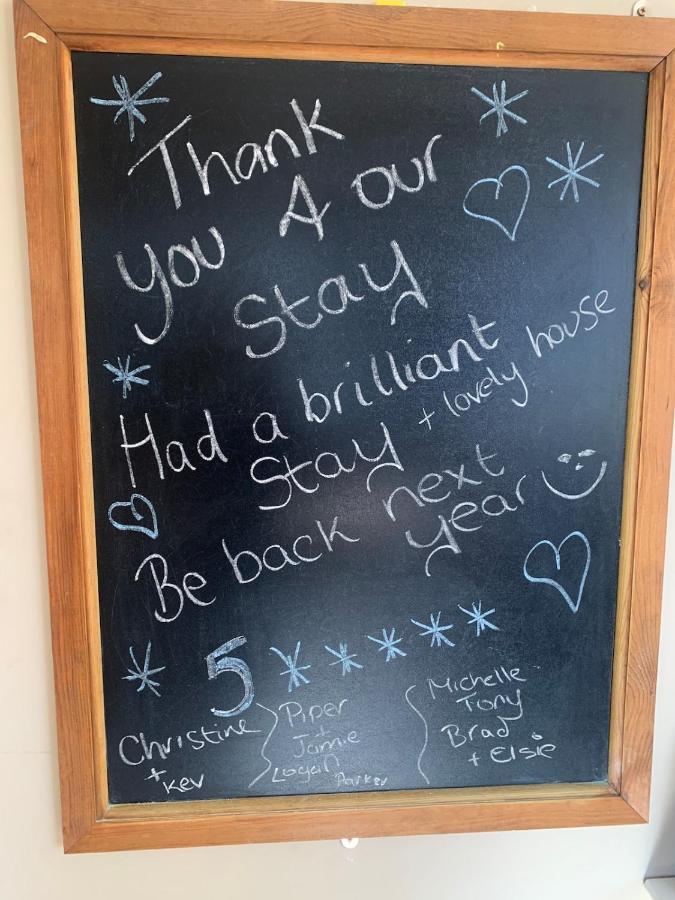 Thank
you 4 our
Stay
Had a brilliant
Stay + lovely house
Be back next
year
5 * * * * *
Christine
+
Kev
Piper
+
Jamie
Logan
Parker
Michelle
Tony
Brad
+ Elsie